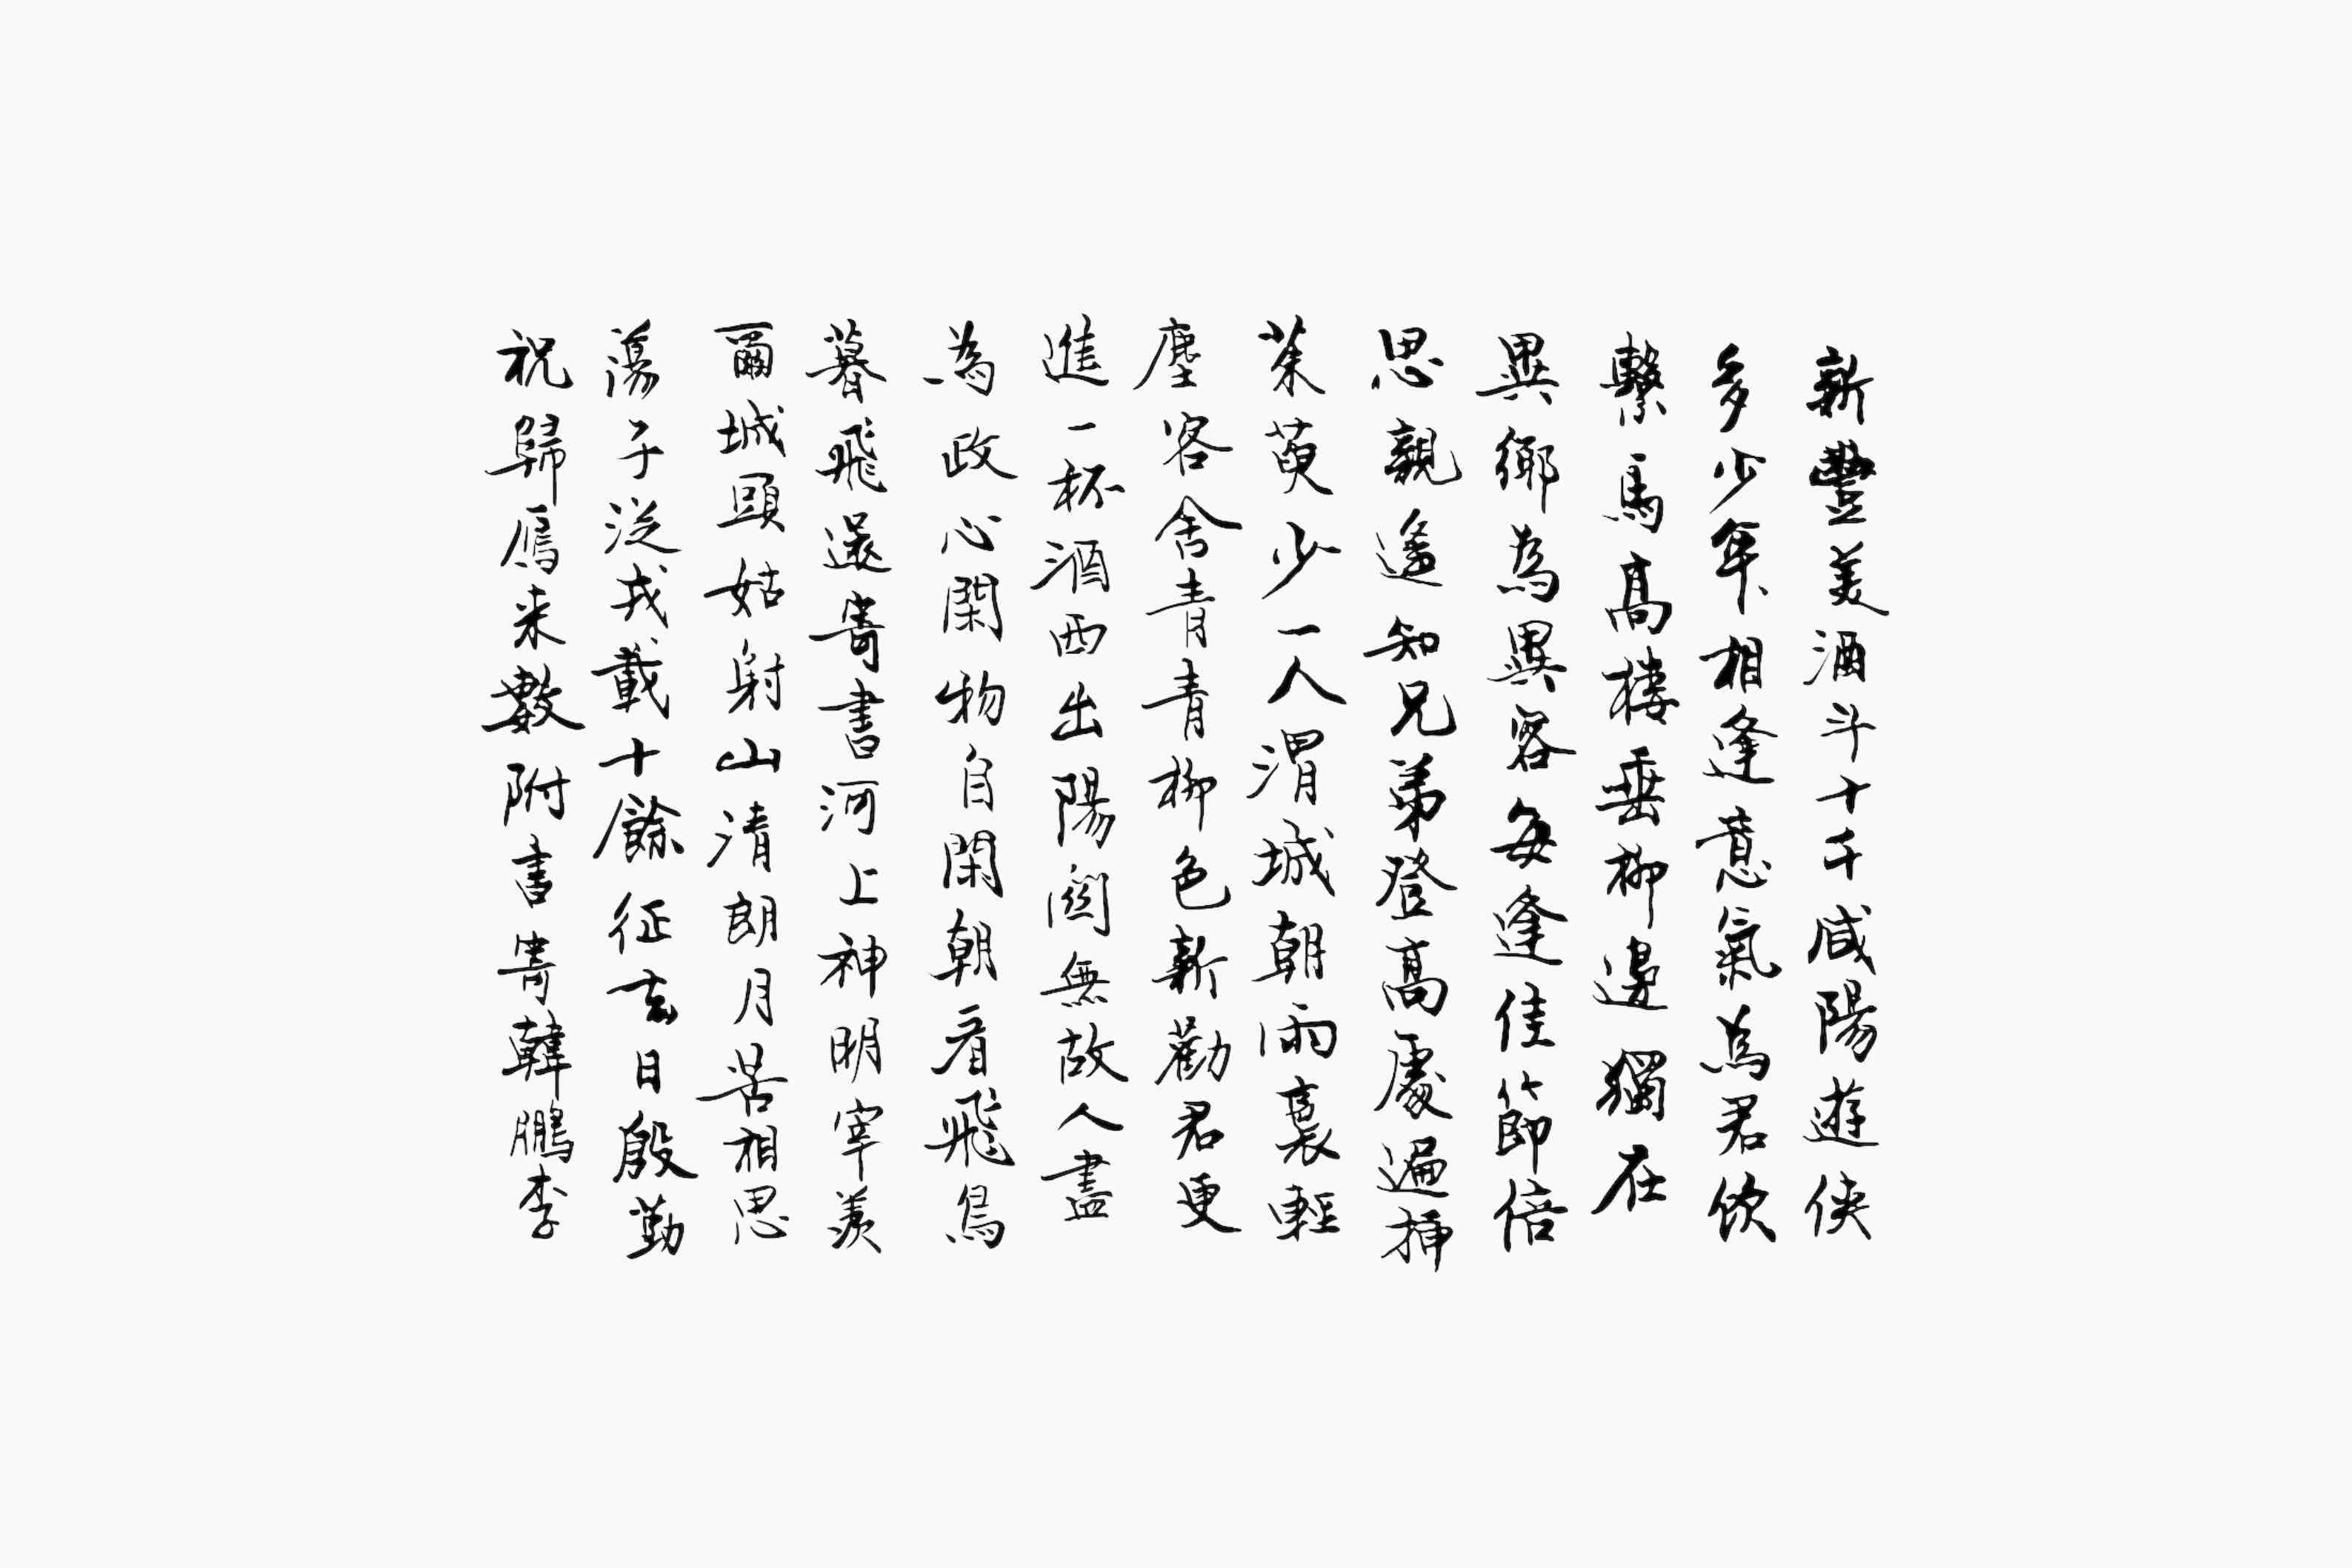 新豐美酒斗十千咸陽遊俠
多少年相逢意氣為君飲
繫馬高樓垂柳邊獨在
異鄉為異客每逢佳節倍
思親遙知兄弟登高處遍插
茱萸少一人渭城朝雨裛輕
塵客舍青青柳色新勸君更
進一杯酒西出陽關無故人盡
一為政心閑物自閑朝看飛鳥
暮飛還寄書河上神明宰羨
爾城頭姑射山清朗月苦相思
蕩子從戎載十餘征去日殷勤
祝歸雁來數附書寄韓鵬李